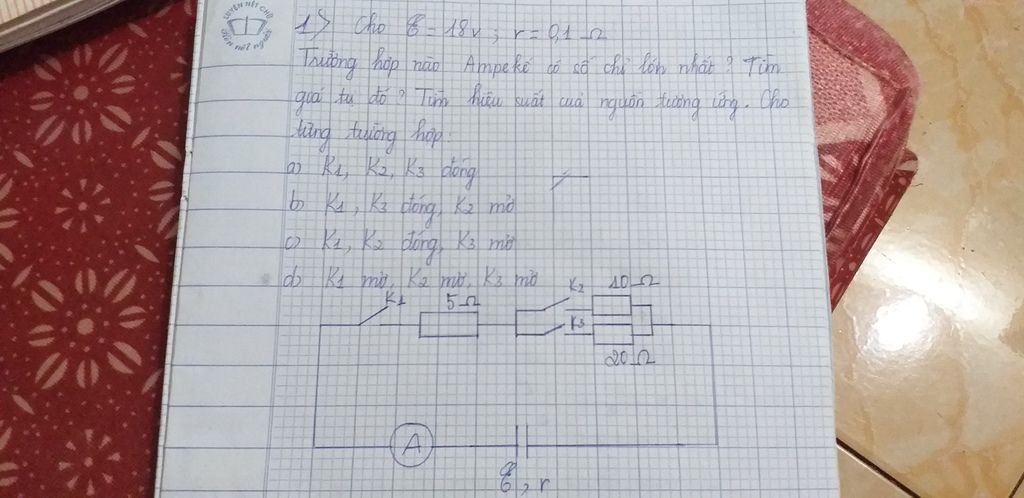 LUYỆN NÉT CHỮ
RÈN NẾT NGƯỜI
1) Cho E = 18v ; r = 0,1 Ω
Trường hợp nào Ampe kế có số chỉ lớn nhất? Tìm
giá trị đó? Tìm hiệu suất của nguồn tương ứng. Cho
từng trường hợp:
a) K1, K2, K3 đóng
b) K1, K3 đóng, K2 mở
c) K1, K2 đóng, K3 mở
d) K1 mở, K2 mở, K3 mở
K1 5Ω K2 10Ω
K3
20Ω
A
E, r